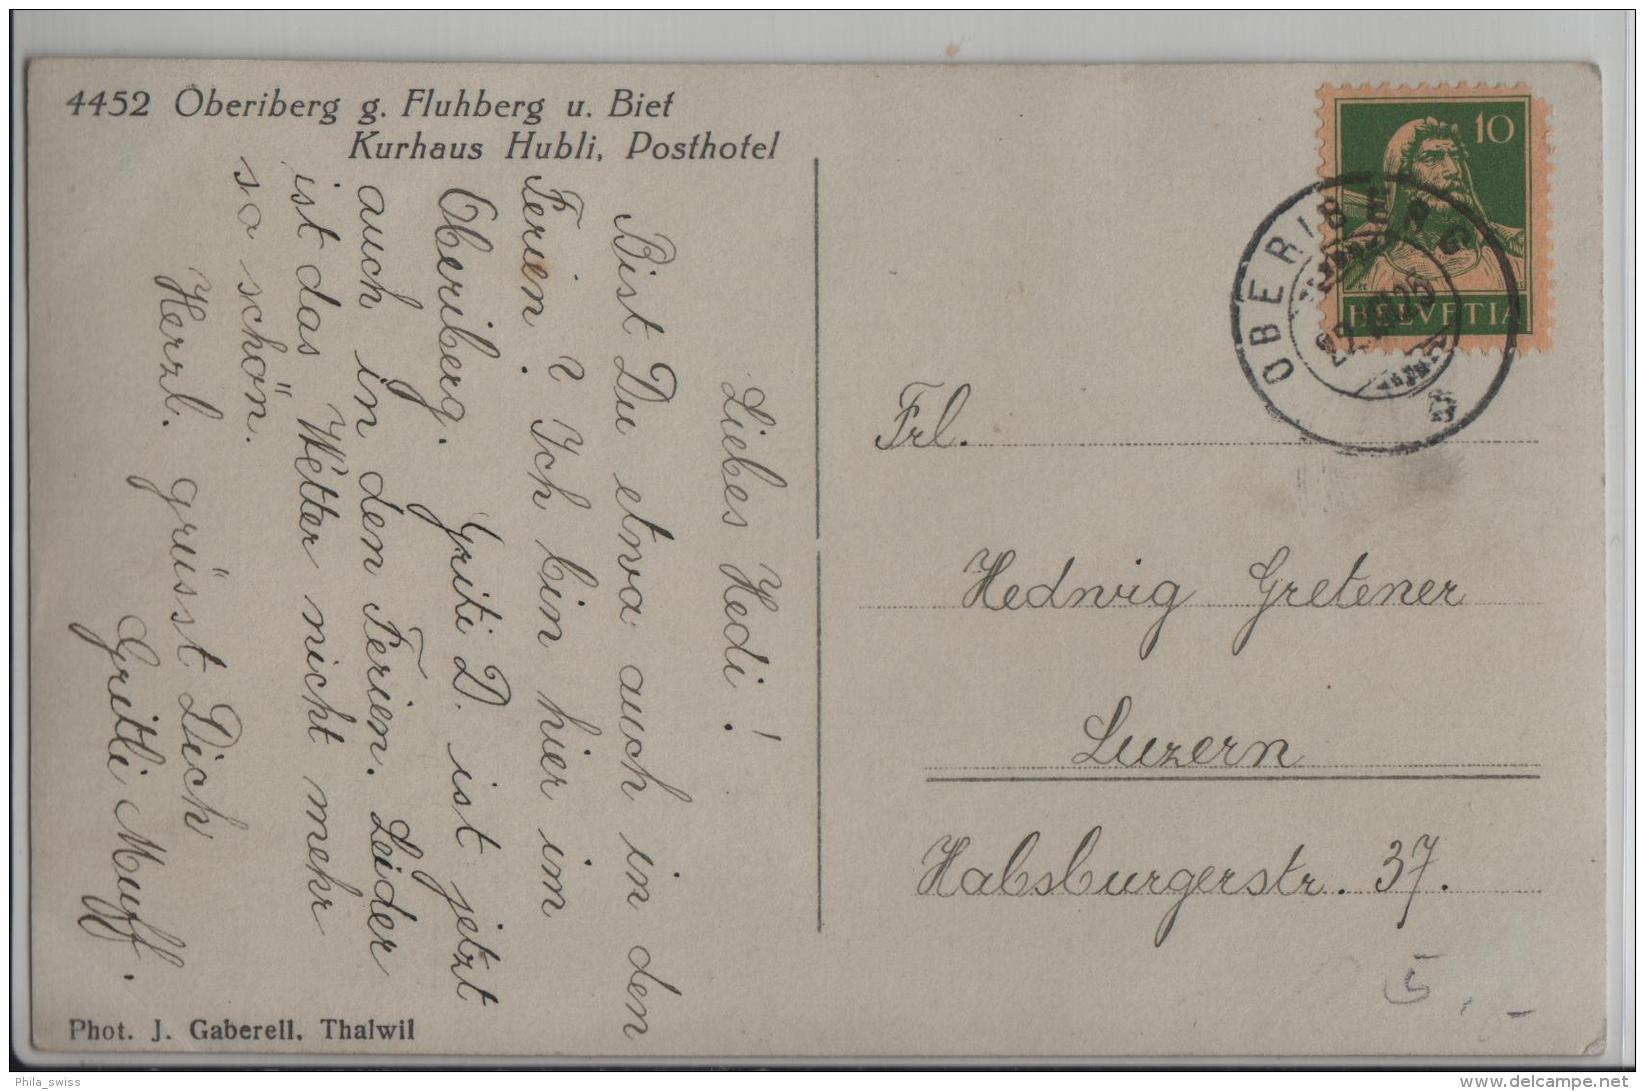 4452 Oberiberg g. Fluhberg u. Biet
Kurhaus Hubli, Posthotel
Liebes Hedi!
Bist Du etwa auch in den
Ferien? Ich bin hier im
Oberiberg. Griti D. ist jetzt
auch in den Ferien. Leider
ist das Wetter nicht mehr
so schön.
Herzl. grüsst Dich
Gritli Muff.
Phot. J. Gaberell, Thalwil
10
HELVETIA
OBERIBERG
Frl.
Hedwig Gretener
Luzern
Habsburgerstr. 37.
5.-
Phila_swiss
www.delcampe.net